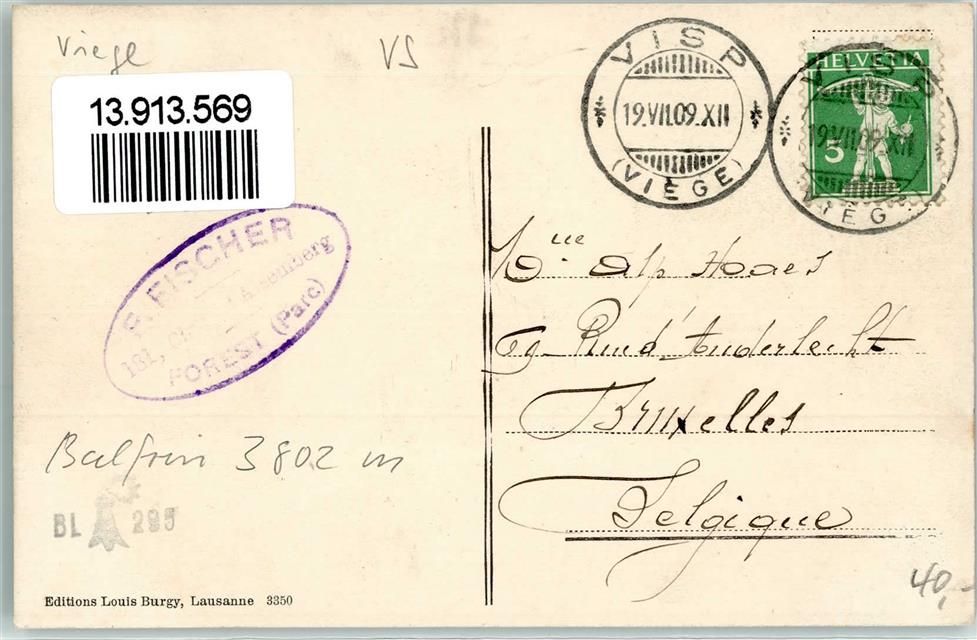 Viege VS
13.913.569
VISP
19.VII.09.XII
(VIEGE)
HELVETIA
5
VISP
19.VII.09.XII
VIEG
FISCHER
181,
FOREST (Parc)
Alp
Rue d'Anderlecht
Bruxelles
Belgique
Balfrin 3802 m
BL 295
40,-
Editions Louis Burgy, Lausanne 3350